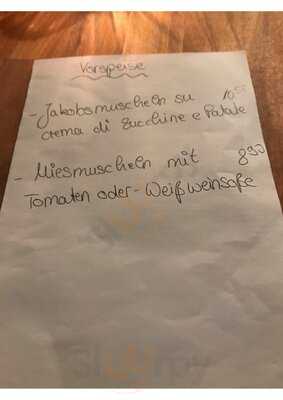 Vorspeise
- Jakobsmuscheln su 10⁵⁰
crema di zucchine e Patate
- Miesmuscheln mit 8⁹⁰
Tomaten oder - Weißweinsoße